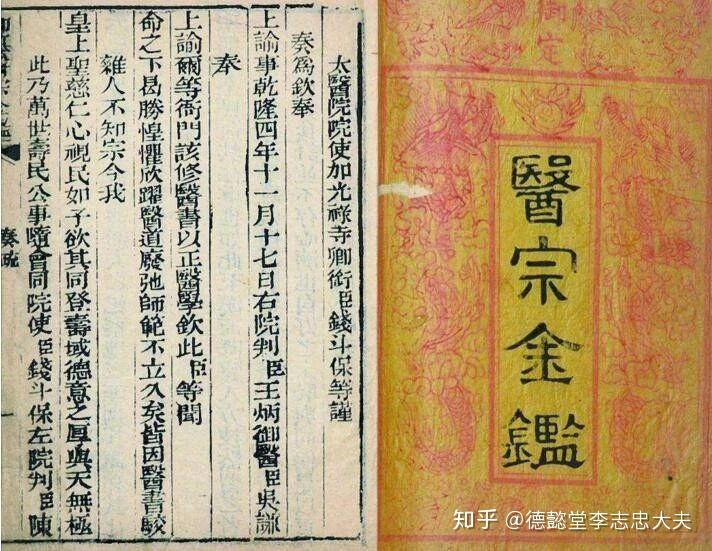 醫宗金鑑
太醫院院使加光祿寺卿銜臣錢斗保等謹
奏為欽奉
上諭事乾隆四年十一月十七日右院判臣王炳御醫臣吳謙
奉
上諭爾等衙門該修醫書以正醫學欽此臣等聞
命之下曷勝惶懼欣躍醫道廢弛師範不立久矣皆因醫書駮
雜人不知宗今我
皇上聖慈仁心視民如子欲其同登壽域德意之厚與天無極
此乃萬世壽民公事隨會同院使臣錢斗保左院判臣陳
奏疏
知乎 @德懿堂李志忠大夫